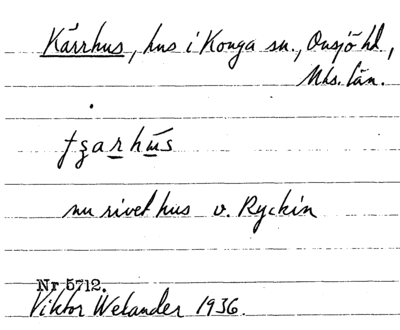 Kärrhus, hus i Konga sn., Onsjö hd,
Mhs. län.
tʒarhús
nu rivet hus v. Ryckin
Nr 5712.
Viktor Welander 1936.